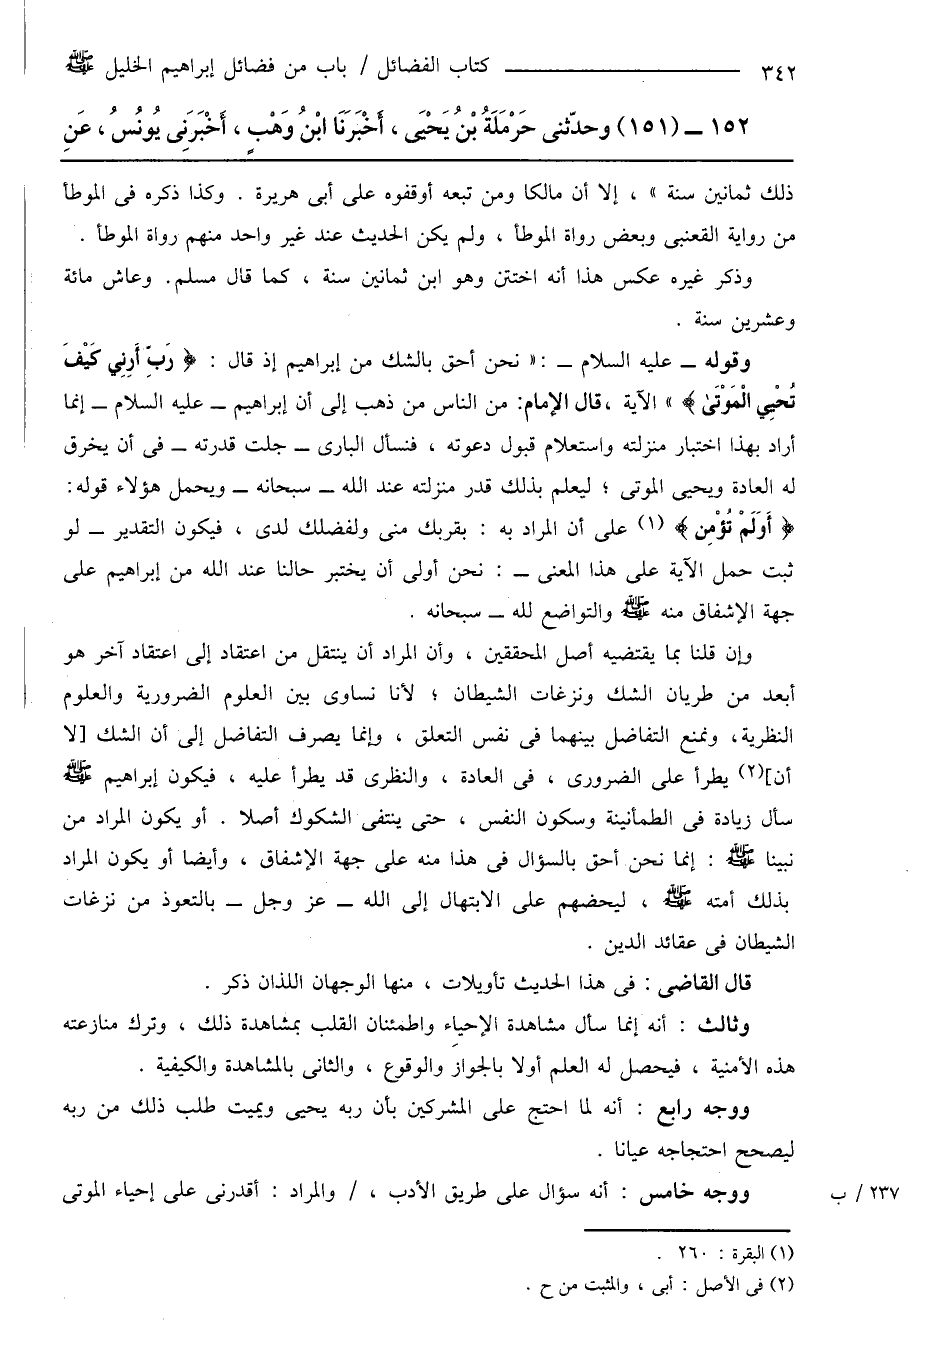 ٣٤٢ ــــــــ كتاب الفضائل / باب من فضائل إبراهيم الخليل ﷺ
١٥٢ ــ (١٥١) وحدّثنى حَرْمَلَةُ بْنُ يَحْيَى ، أَخْبَرَنَا ابْنُ وَهْبٍ ، أَخْبَرَنِى يُونُسُ ، عَنِ
ذلك ثمانين سنة » ، إلا أن مالكا ومن تبعه أوقفوه على أبى هريرة . وكذا ذكره فى الموطأ
من رواية القعنبى وبعض رواة الموطأ ، ولم يكن الحديث عند غير واحد منهم رواة الموطأ .
وذكر غيره عكس هذا أنه اختتن وهو ابن ثمانين سنة ، كما قال مسلم. وعاش مائة
وعشرين سنة .
وقوله ــ عليه السلام ــ :« نحن أحق بالشك من إبراهيم إذ قال : ﴿ رَبِّ أَرِنِي كَيْفَ
تُحْيِي الْمَوْتَىٰ ﴾ » الآية ،قال الإمام: من الناس من ذهب إلى أن إبراهيم ــ عليه السلام ــ إنما
أراد بهذا اختبار منزلته واستعلام قبول دعوته ، فنسأل البارى ــ جلت قدرته ــ فى أن يخرق
له العادة ويحيى الموتى ؛ ليعلم بذلك قدر منزلته عند الله ــ سبحانه ــ ويحمل هؤلاء قوله:
﴿ أَوَلَمْ تُؤْمِن ﴾ (١) على أن المراد به : بقربك منى ولفضلك لدى ، فيكون التقدير ــ لو
ثبت حمل الآية على هذا المعنى ــ : نحن أولى أن يختبر حالنا عند الله من إبراهيم على
جهة الإشفاق منه ﷺ والتواضع لله ــ سبحانه .
وإن قلنا بما يقتضيه أصل المحققين ، وأن المراد أن ينتقل من اعتقاد إلى اعتقاد آخر هو
أبعد من طريان الشك ونزغات الشيطان ؛ لأنا نساوى بين العلوم الضرورية والعلوم
النظرية، ونمنع التفاضل بينهما فى نفس التعلق ، وإنما يصرف التفاضل إلى أن الشك [لا
أن](٢) يطرأ على الضرورى ، فى العادة ، والنظرى قد يطرأ عليه ، فيكون إبراهيم ﷺ
سأل زيادة فى الطمأنينة وسكون النفس ، حتى ينتفى الشكوك أصلا . أو يكون المراد من
نبينا ﷺ : إنما نحن أحق بالسؤال فى هذا منه على جهة الإشفاق ، وأيضا أو يكون المراد
بذلك أمته ﷺ ، ليحضهم على الابتهال إلى الله ــ عز وجل ــ بالتعوذ من نزغات
الشيطان فى عقائد الدين .
قال القاضى : فى هذا الحديث تأويلات ، منها الوجهان اللذان ذكر .
وثالث : أنه إنما سأل مشاهدة الإحياء واطمئنان القلب بمشاهدة ذلك ، وترك منازعته
هذه الأمنية ، فيحصل له العلم أولا بالجواز والوقوع ، والثانى بالمشاهدة والكيفية .
ووجه رابع : أنه لما احتج على المشركين بأن ربه يحيى ويميت طلب ذلك من ربه
ليصحح احتجاجه عيانا .
ووجه خامس : أنه سؤال على طريق الأدب ، / والمراد : أقدرنى على إحياء الموتى
٢٣٧ / ب
(١) البقرة : ٢٦٠ .
(٢) فى الأصل : أبى ، والمثبت من ح .